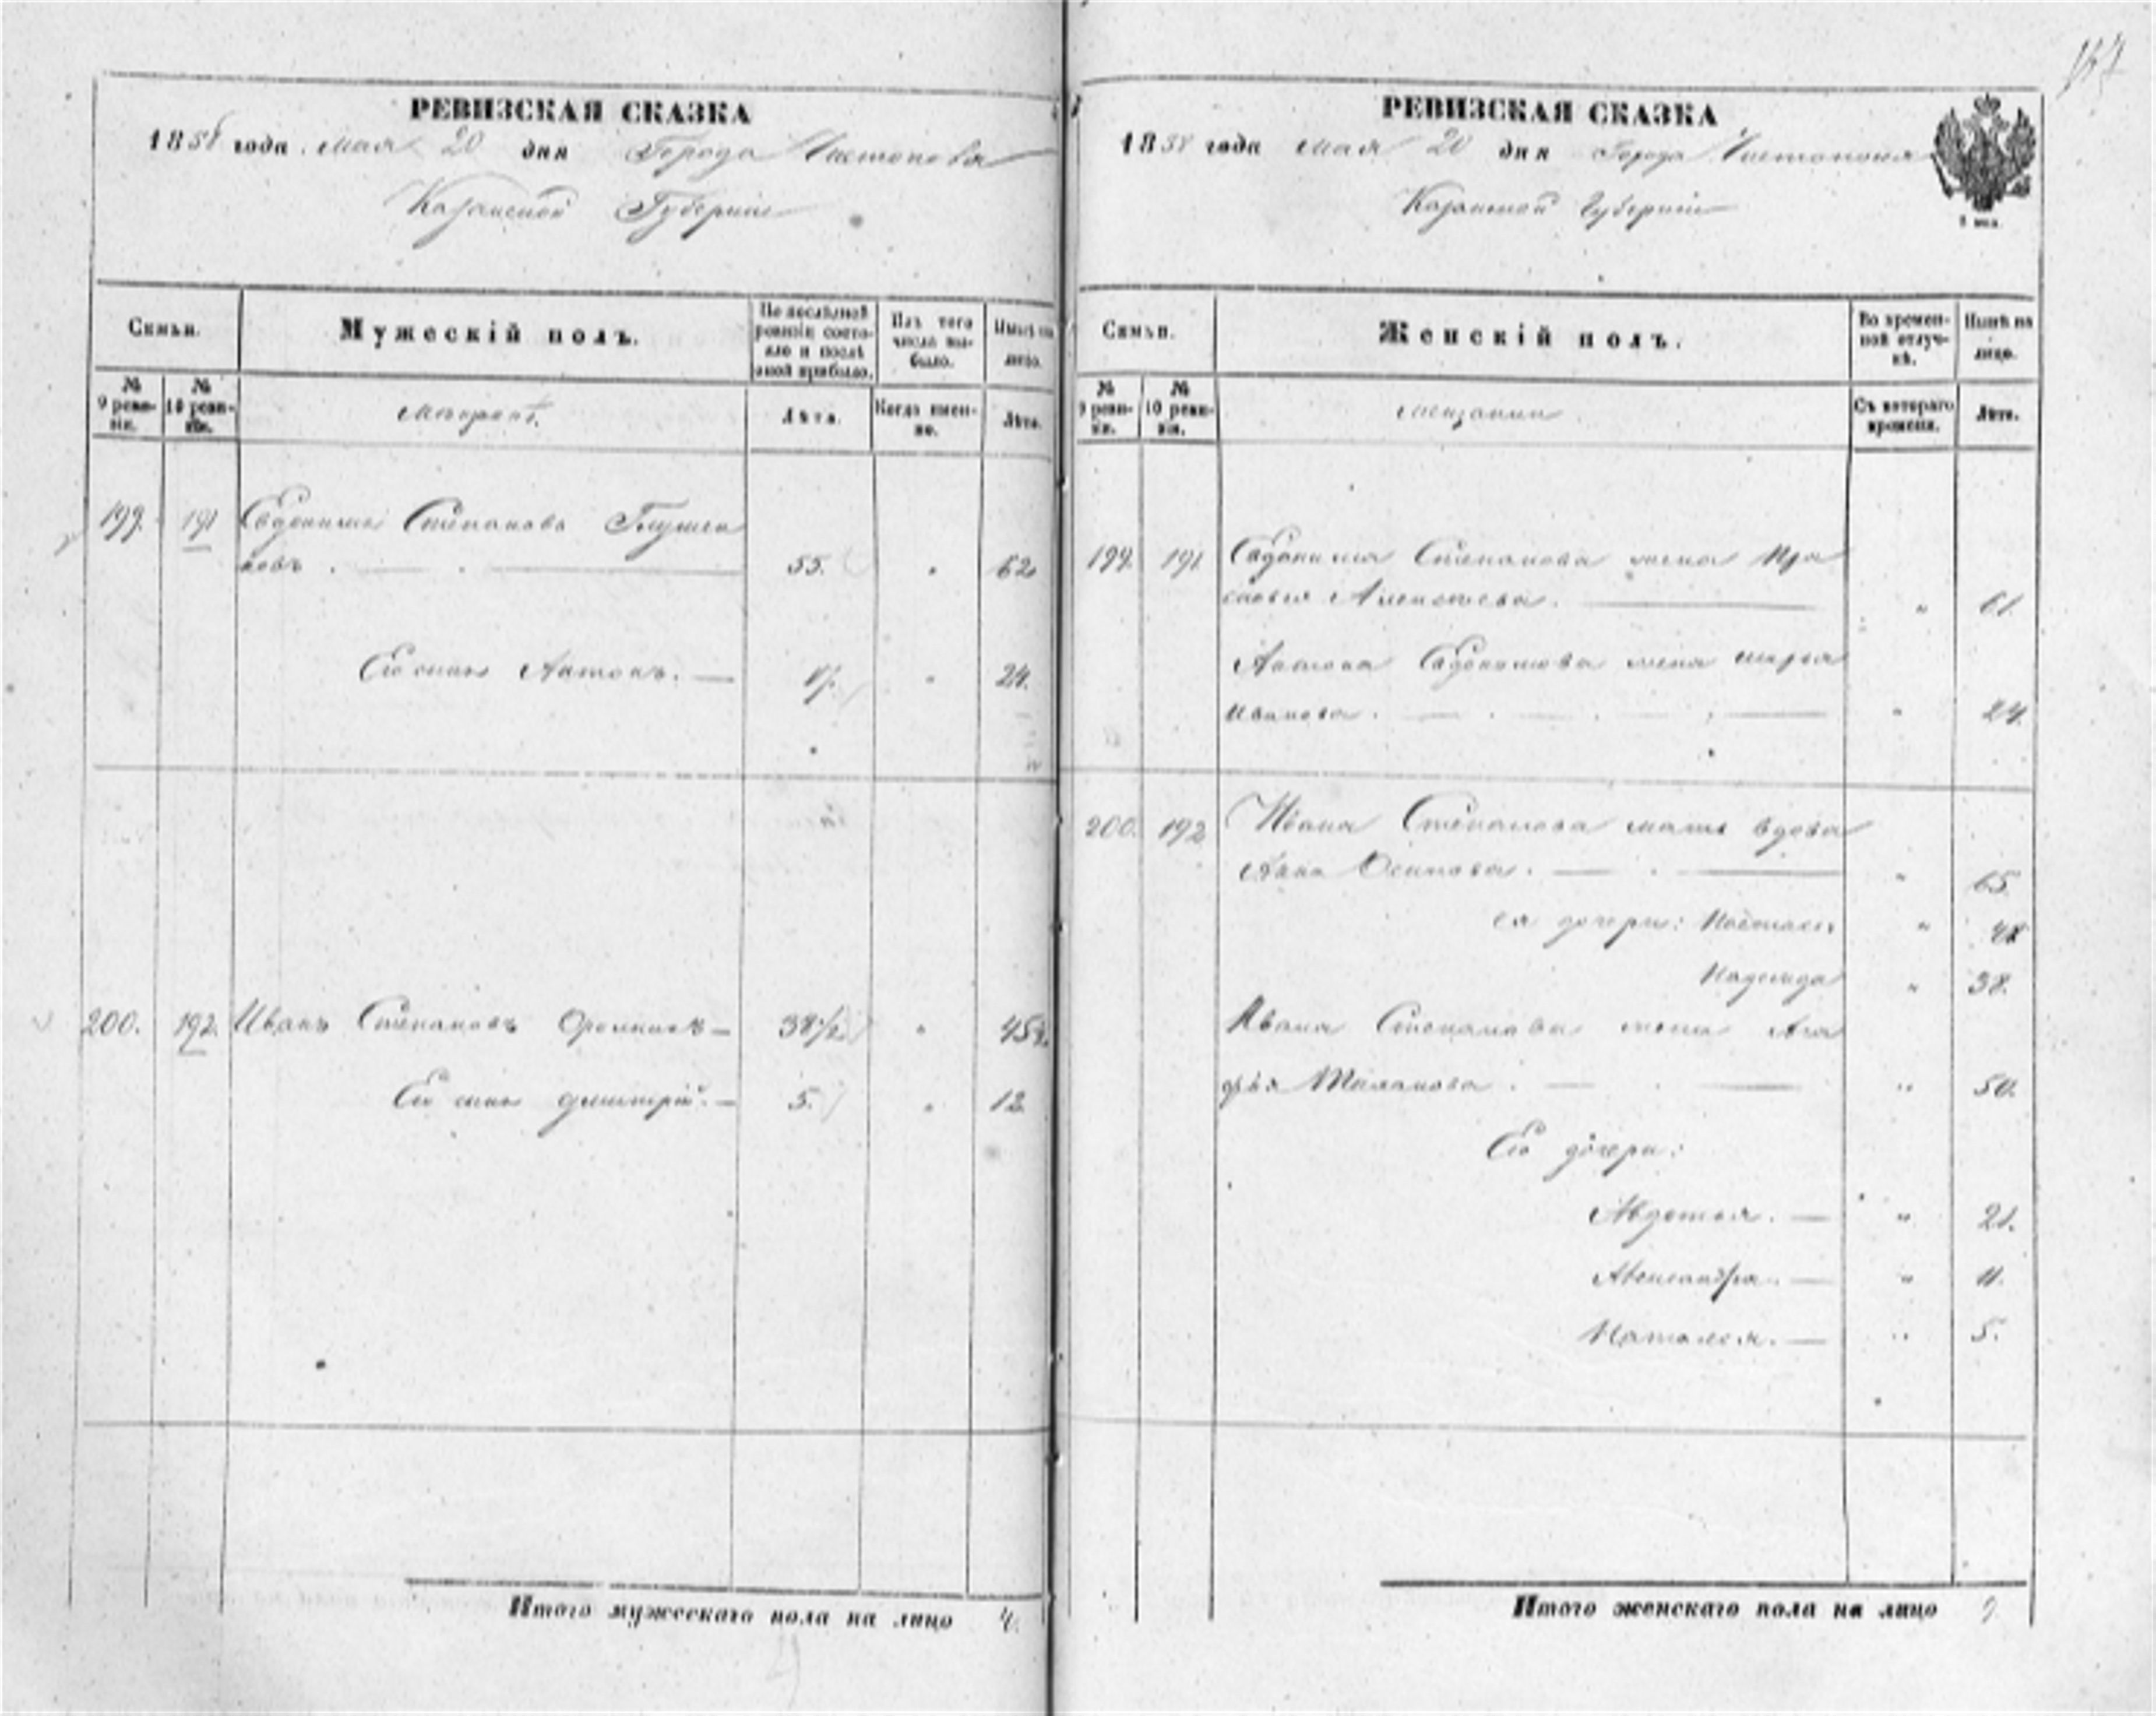 РЕВИЗСКАЯ СКАЗКА
1858 года мая 20 дня Города Чистополя
Казанской Губернiи
Семьи.
Мужескiй полъ.
По послѣдней ревизiи состояло и послѣ оной прибыло.
Изъ того числа выбыло.
Нынѣ на лицо.
№ 9 ревизiи.
№ 10 ревизiи.
Лѣта.
Когда именно.
Лѣта.
199. 191 Евдокимъ Степановъ
ковъ . 55. " 62
Его сынъ Антонъ. 17. " 24.
200. 192. Иванъ Степановъ 38 1/2 " 45 1/2
Его сынъ Дмитрiй. 5. " 12
Итого мужескаго пола на лицо 4.
157
РЕВИЗСКАЯ СКАЗКА
1858 года мая 20 дня Города Чистополя
Казанской Губернiи
Семьи.
Женскiй полъ.
Во временной отлучкѣ.
Нынѣ на лицо.
№ 9 ревизiи.
№ 10 ревизiи.
Мещанки
Съ котораго времени.
Лѣта.
199. 191. Евдокима Степанова жена Пра
сковья Алексѣева. " 61.
Антона Евдокимова жена Марья
Иванова. " 24.
200. 192 Ивана Степанова мать вдова
Анна Осипова. " 65.
ея дочери: Настасья "
Надежда " 38.
Ивана Степанова жена Ага
фья " 50.
Его дочери:
Авдотья. " 21.
Александра. " 11.
Наталья. " 5.
Итого женскаго пола на лицо 9